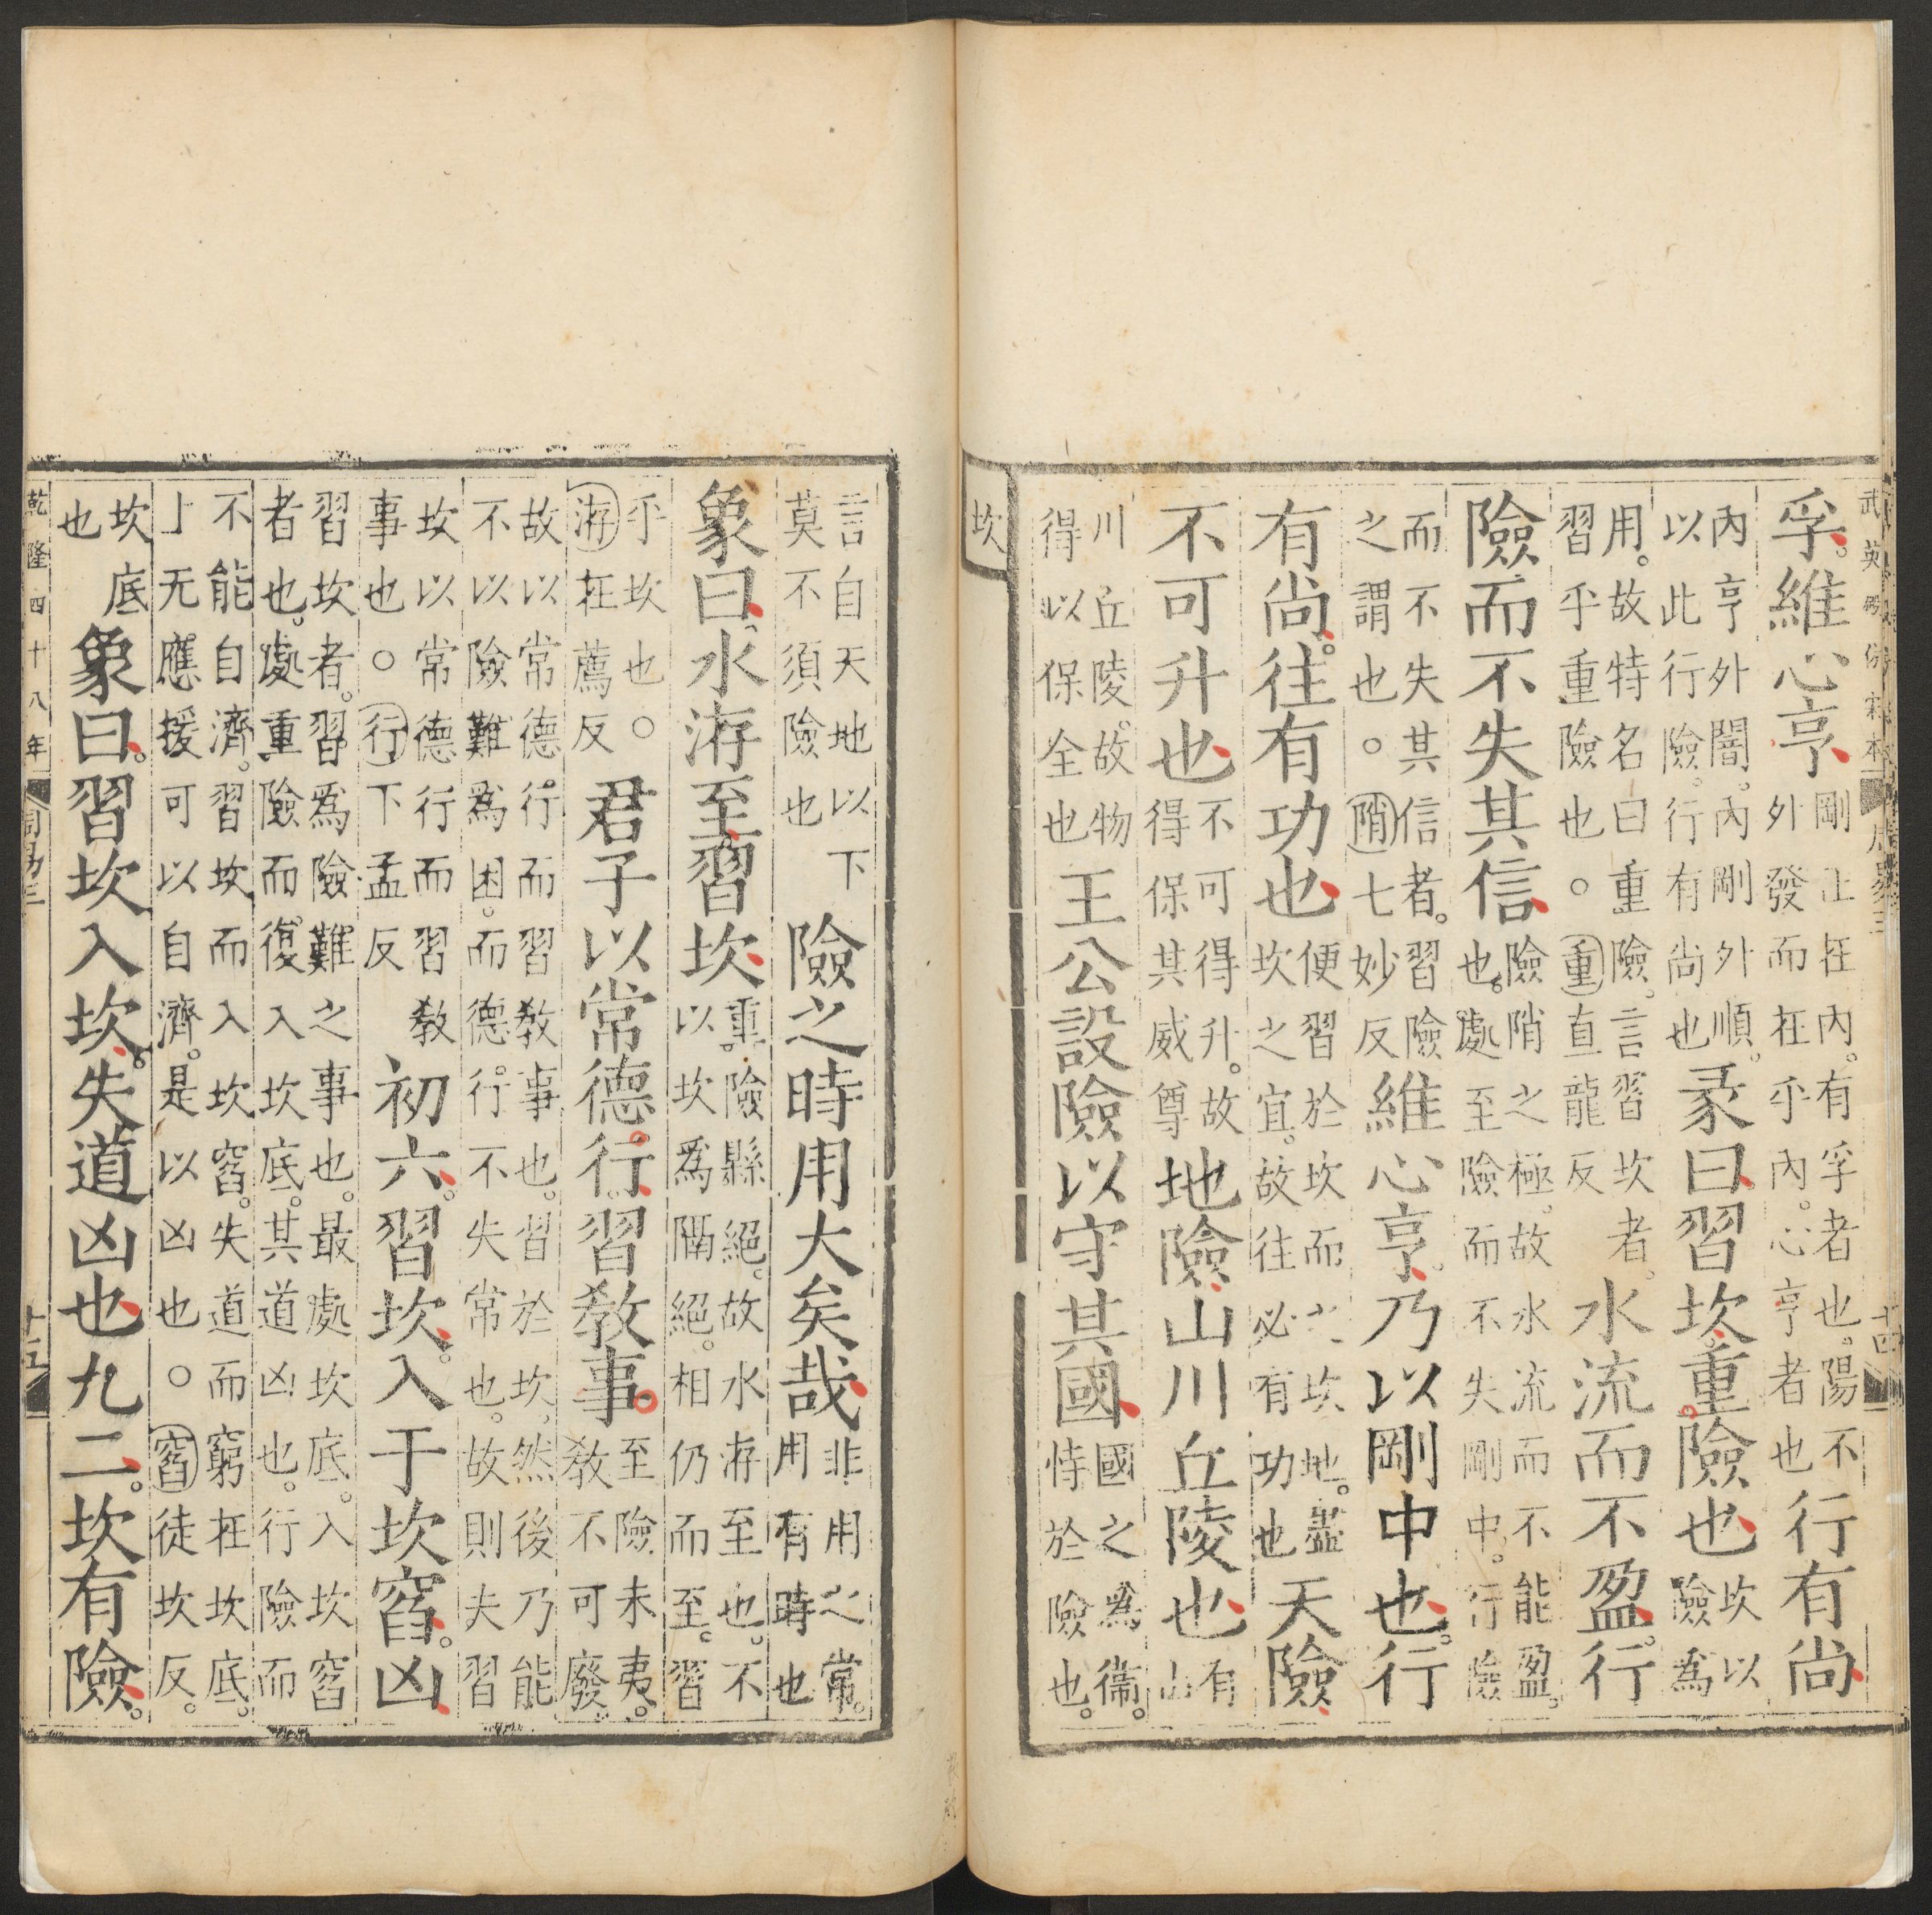 武英殿仿宋本
周易三
十四
孚。維心亨。剛正在內。有孚者也。陽不外發而在乎內。心亨者也行有尚
內亨外闇。內剛外順。以此行險。行有尚也彖曰。習坎。重險也坎以險為
用。故特名曰重險。言習坎者。習乎重險也。○重直龍反水流而不盈。行
險而不失其信險陗之極。故水流而不能盈。也。處至險而不失剛中。行險
而不失其信者。習險之謂也。○陗七妙反維心亨。乃以剛中也。行
有尚。往有功也便習於坎而之坎地。盡坎之宜。故往必有功也天險
不可升也不可得升。故得保其威尊地險。山川丘陵也有山
川丘陵。故物得以保全也王公設險以守其國國之為衞。恃於險也。
坎
言自天地以下莫不須險也險之時用大矣哉非用之常。用有時也
象曰。水洊至習坎重險縣絕。故水洊至也。不以坎為隔絕。相仍而至。習
乎坎也。○洊在薦反君子以常德行。習敎事。至險未夷。敎不可廢。
故以常德行。而習敎事也。習於坎。然後乃能不以險難為困。而德行不失常也。故則夫習
坎以常德行而習敎事也。○行下孟反初六。習坎。入于坎窞。凶
習坎者。習為險難之事也。最處坎底。入坎窞者也。處重險而復入坎底。其道凶也。行險而
不能自濟。習坎而入坎窞。失道而窮在坎底。上无應援可以自濟。是以凶也。○窞徒坎反。
坎底也象曰。習坎入坎。失道凶也九二。坎有險。
乾隆四十八年
周易三
十五